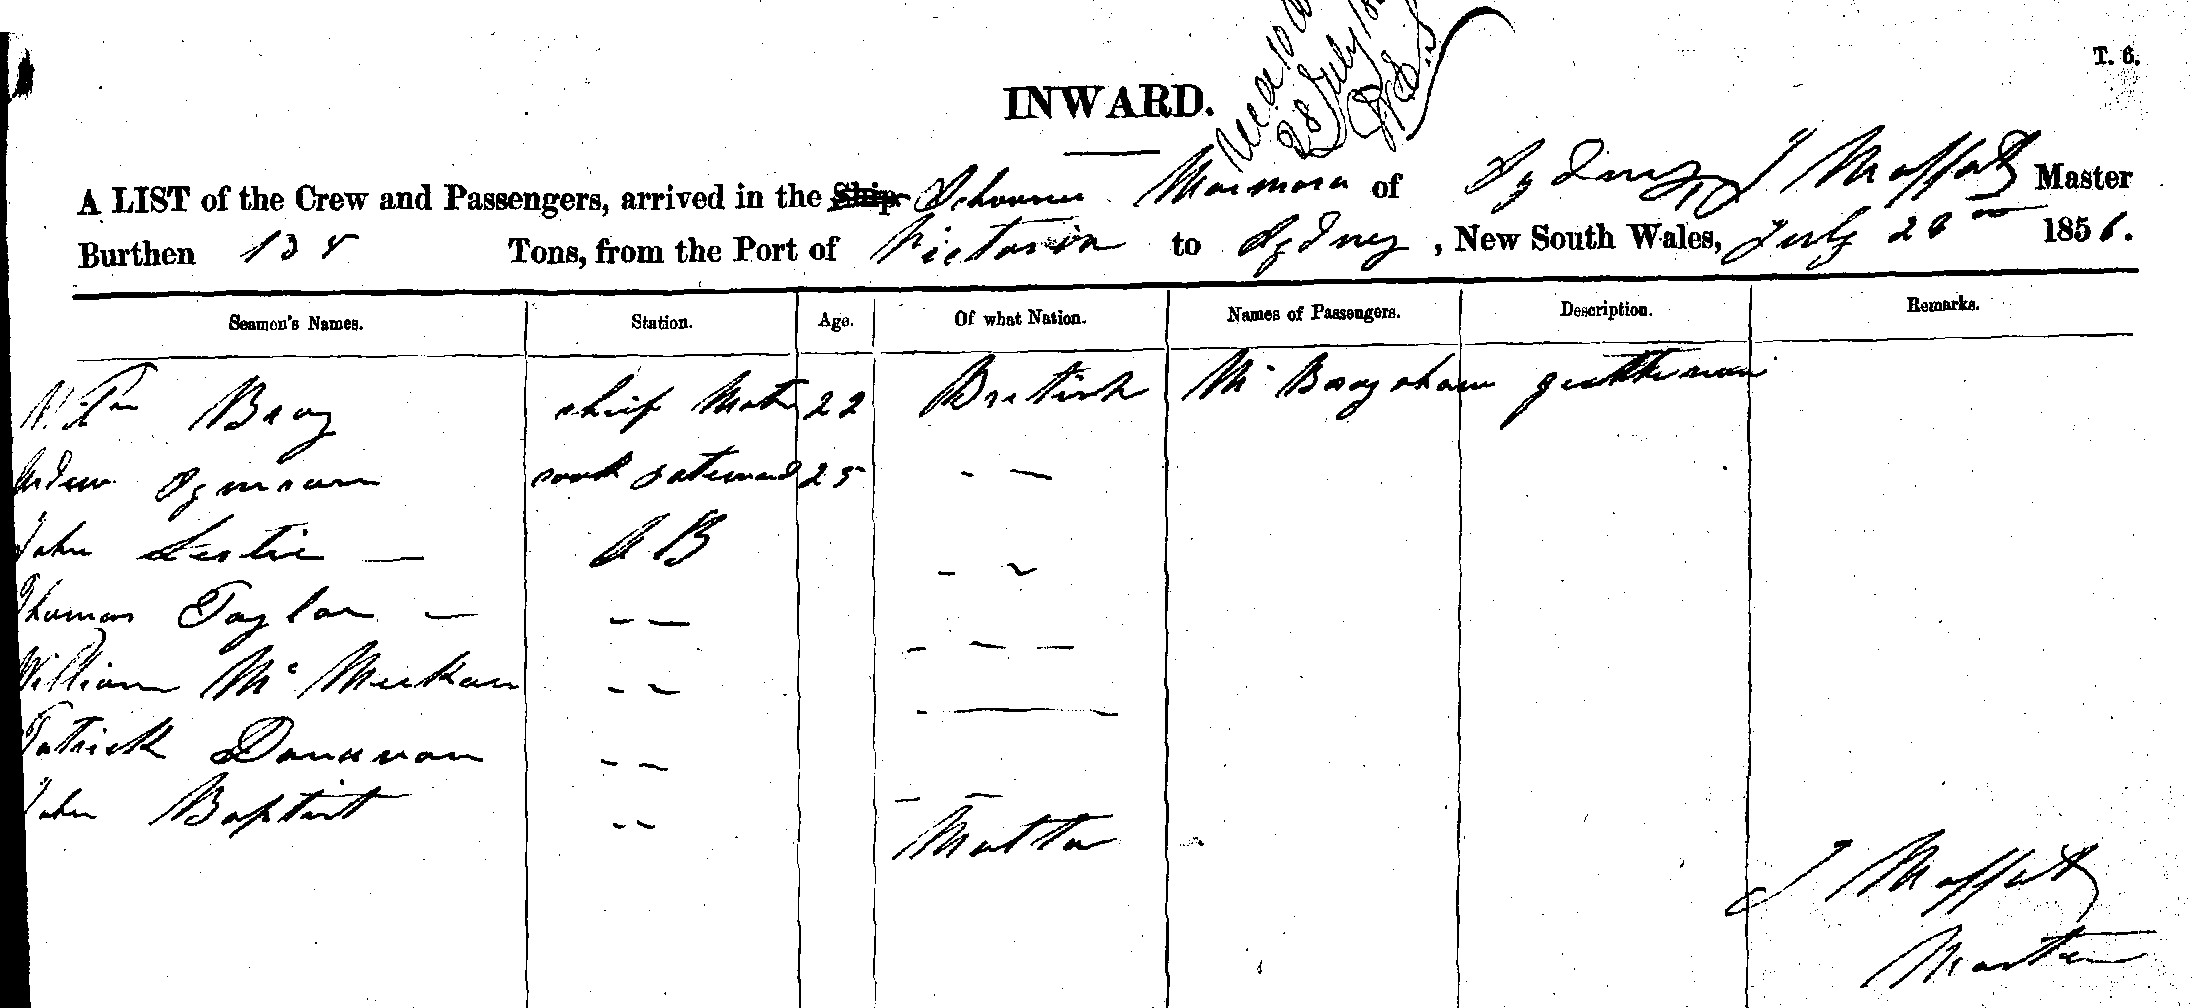 T. 6.
28 July
INWARD.
A LIST of the Crew and Passengers, arrived in the Ship Schooner Marmora of Sydney J Moffat Master
Burthen 138 Tons, from the Port of Victoria to Sydney, New South Wales, July 28 1856.
Seamen's Names. Station. Age. Of what Nation. Names of Passengers. Description. Remarks.
Wm Bray chief Mate 22 British Mr gentleman
Andrew cook steward 25 - -
John Leslie - A B - -
Thomas Taylor - - - - - -
William Mc Meekan - - -
Patrick Donavan - - - -
John Baptist - - Malta
J Moffat
Master